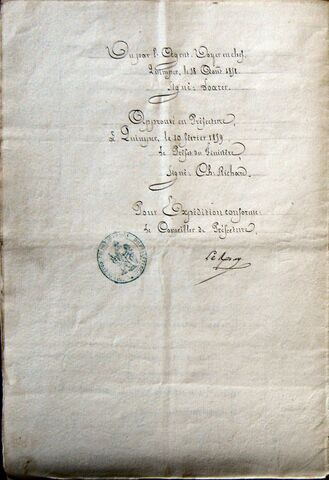 Vu par l'Agent-Voyer en chef.
Quimper, le 18 Août 185
Signé: Soarer.
Approuvé en Préfecture,
à Quimper, le 10 février 1859
Le Préfet du Finistère,
Signé: Ch. Richard.
Pour Expédition conforme:
Le Conseiller de Préfecture,